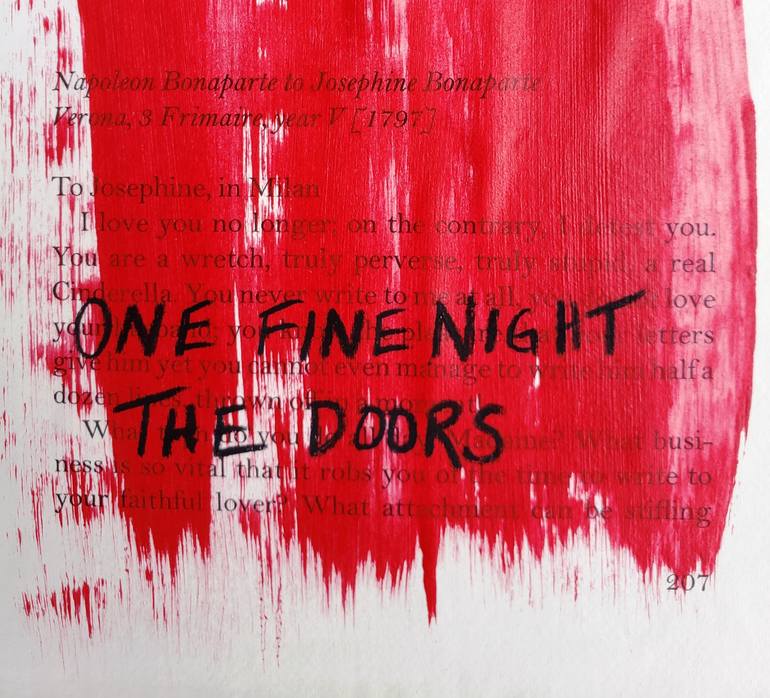 Napoleon Bonaparte to Josephine Bonaparte
Verona, 3 Frimaire, year V [1797]
To Josephine, in Milan
I love you no longer; on the contrary, I detest you.
You are a wretch, truly perverse, truly stupid, a real
Cinderella. You never write to me at all, you love
your letters
give him yet you cannot even manage to write him half a
dozen lines, thrown off in a moment
ONE FINE NIGHT
THE DOORS
What do you Madame? What busi-
ness is so vital that it robs you of the time to write to
your faithful lover? What attachment can be stifling
207